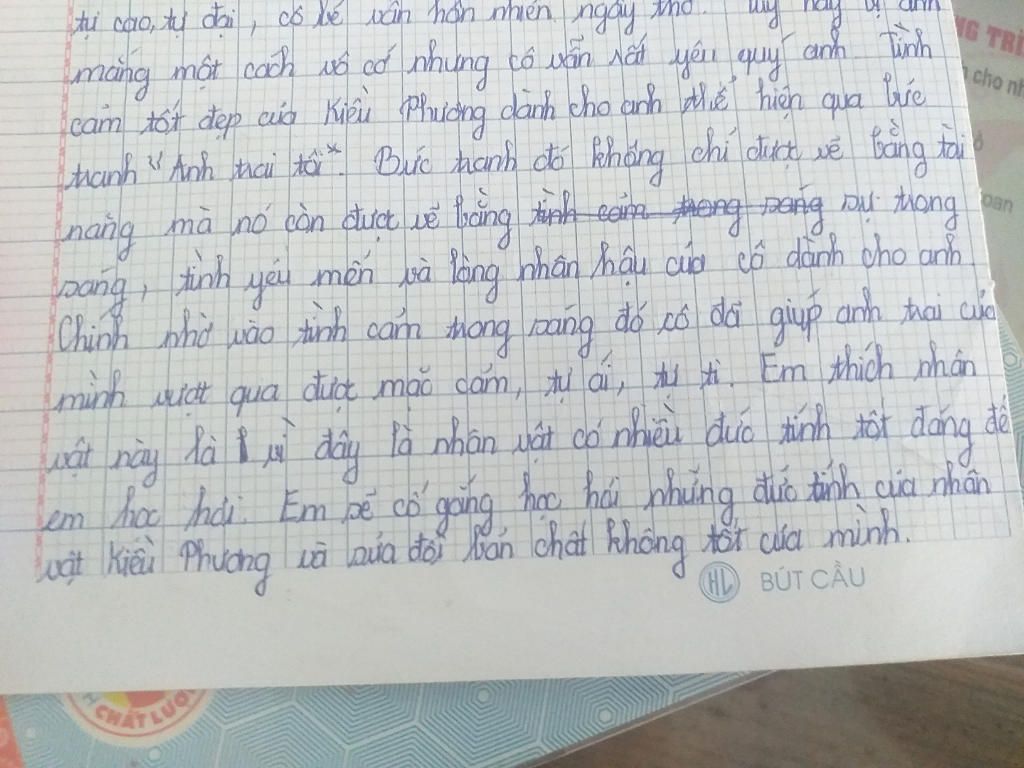 tự cao, tự đại, cô bé vẫn hồn nhiên ngây thơ. Tuy hay bị anh
mắng một cách vô cớ nhưng cô vẫn rất yêu quý anh. Tình
cảm tốt đẹp của Kiều Phương dành cho anh thể hiện qua bức
tranh "Anh trai tôi". Bức tranh đó không chỉ được vẽ bằng tài
năng mà nó còn được vẽ bằng tình cảm trong sáng sự trong
sáng, tình yêu mến và lòng nhân hậu của cô dành cho anh.
Chính nhờ vào tình cảm trong sáng đó cô đã giúp anh trai của
mình vượt qua được mặc cảm, tự ái, tự ti. Em thích nhân
vật này là vì đây là nhân vật có nhiều đức tính tốt đáng để
em học hỏi. Em sẽ cố gắng học hỏi những đức tính của nhân
vật Kiều Phương và sửa đổi bản chất không tốt của mình.
HL BÚT CẦU
CHẤT LƯỢ
NG TRÌ
cho nh
oan